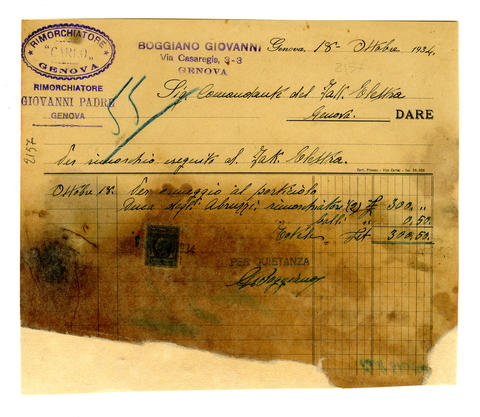 RIMORCHIATORE
"CARLO"
GENOVA
RIMORCHIATORE
GIOVANNI PADRE
GENOVA
BOGGIANO GIOVANNI
Via Casaregis, 3-3
GENOVA
Genova, 18 - Ottobre 1934
2157
55
Sig. Comandante del Yak. Elettra
Genova. DARE
2157
Per rimorchio eseguito al Yak. Elettra.
Ottobre 18. Per ormeggio al porticciolo
Duca degli Abruzzi, rimorchiatori (2) £ 300 "
bolli " 0,50
Totale £it 300,50.
PER QUIETANZA